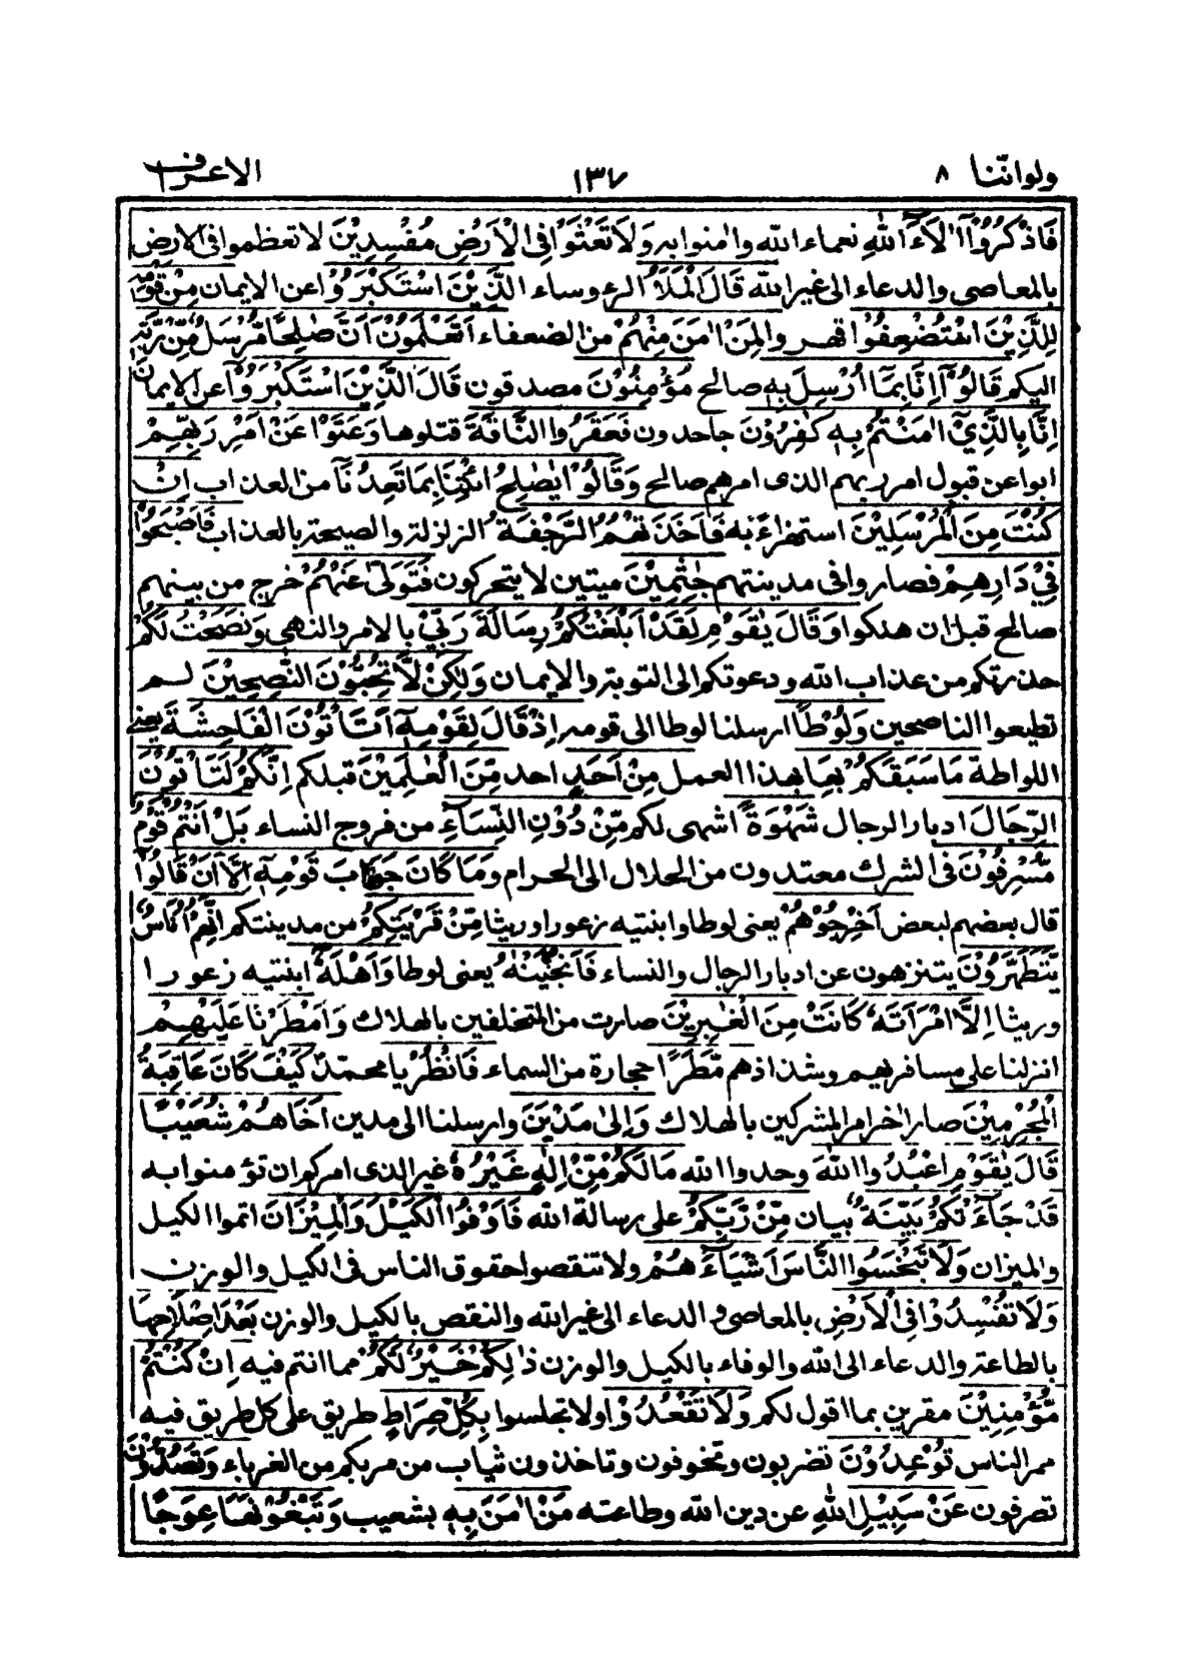 ولواننا ٨ ١٣٧ الاعراف
فَاذْكُرُوْٓا اٰلَآءَ اللّٰهِ نعماء الله واٰمنوا به وَلَا تَعْثَوْا فِي الْاَرْضِ مُفْسِدِيْنَ لا تعظموا فى الارض
بالمعاصى والدعاء الى غير الله قَالَ الْمَلَاُ الرءوساء الَّذِيْنَ اسْتَكْبَرُوْا عن الايمان مِنْ قَوْمِهٖ
لِلَّذِيْنَ اسْتُضْعِفُوْا قهروا لِمَنْ اٰمَنَ مِنْهُمْ من الضعفاء اَتَعْلَمُوْنَ اَنَّ صٰلِحًا مُّرْسَلٌ مِّنْ رَّبِّهٖ
اليكم قَالُوْٓا اِنَّا بِمَآ اُرْسِلَ بِهٖ صالح مُؤْمِنُوْنَ مصدقون قَالَ الَّذِيْنَ اسْتَكْبَرُوْٓا عن الايمان
اِنَّا بِالَّذِيْٓ اٰمَنْتُمْ بِهٖ كٰفِرُوْنَ جاحدون فَعَقَرُوا النَّاقَةَ قتلوها وَعَتَوْا عَنْ اَمْرِ رَبِّهِمْ
ابوا عن قبول امر ربهم الذى امرهم صالح وَقَالُوْا يٰصٰلِحُ ائْتِنَا بِمَا تَعِدُنَآ من العذاب اِنْ
كُنْتَ مِنَ الْمُرْسَلِيْنَ استهزاءً به فَاَخَذَتْهُمُ الرَّجْفَةُ الزلزلة والصيحة بالعذاب فَاَصْبَحُوْا
فِيْ دَارِهِمْ فصاروا فى مدينتهم جٰثِمِيْنَ ميتين لا يتحركون فَتَوَلّٰى عَنْهُمْ خرج من بينهم
صالح قبل ان هلكوا وَقَالَ يٰقَوْمِ لَقَدْ اَبْلَغْتُكُمْ رِسَالَةَ رَبِّيْ بالامر والنهى وَنَصَحْتُ لَكُمْ
حذرتكم من عذاب الله ودعوتكم الى التوبة والايمان وَلٰكِنْ لَّا تُحِبُّوْنَ النّٰصِحِيْنَ لم
تطيعوا الناصحين وَلُوْطًا ارسلنا لوطا الى قومه اِذْ قَالَ لِقَوْمِهٖٓ اَتَاْتُوْنَ الْفَاحِشَةَ يعنى
اللواطة مَا سَبَقَكُمْ بِهَا بهذا العمل مِنْ اَحَدٍ احد مِّنَ الْعٰلَمِيْنَ قبلكم اِنَّكُمْ لَتَاْتُوْنَ
الرِّجَالَ ادبار الرجال شَهْوَةً اشهى لكم مِّنْ دُوْنِ النِّسَآءِ من فروج النساء بَلْ اَنْتُمْ قَوْمٌ
مُّسْرِفُوْنَ فى الشرك معتدون من الحلال الى الحرام وَمَا كَانَ جَوَابَ قَوْمِهٖٓ اِلَّآ اَنْ قَالُوْٓا
قال بعضهم لبعض اَخْرِجُوْهُمْ يعنى لوطا وابنتيه زعورا وريثا مِّنْ قَرْيَتِكُمْ من مدينتكم اِنَّهُمْ اُنَاسٌ
يَّتَطَهَّرُوْنَ يتنزهون عن ادبار الرجال والنساء فَاَنْجَيْنٰهُ يعنى لوطا وَاَهْلَهٗٓ ابنتيه زعورا
وريثا اِلَّا امْرَاَتَهٗ كَانَتْ مِنَ الْغٰبِرِيْنَ صارت من المتخلفين بالهلاك وَاَمْطَرْنَا عَلَيْهِمْ
انزلنا على مسافريهم وشذاذهم مَّطَرًا حجارة من السماء فَانْظُرْ يا محمد كَيْفَ كَانَ عَاقِبَةُ
الْمُجْرِمِيْنَ صار اٰخر امر المشركين بالهلاك وَاِلٰى مَدْيَنَ وارسلنا الى مدين اَخَاهُمْ شُعَيْبًا
قَالَ يٰقَوْمِ اعْبُدُوا اللّٰهَ وحدوا الله مَا لَكُمْ مِّنْ اِلٰهٍ غَيْرُهٗ غير الذى امركم ان تؤمنوا به
قَدْ جَآءَتْكُمْ بَيِّنَةٌ بيان مِّنْ رَّبِّكُمْ على رسالة الله فَاَوْفُوا الْكَيْلَ وَالْمِيْزَانَ اتموا الكيل
والميزان وَلَا تَبْخَسُوا النَّاسَ اَشْيَآءَهُمْ ولا تنقصوا حقوق الناس فى الكيل والوزن
وَلَا تُفْسِدُوْا فِي الْاَرْضِ بالمعاصى والدعاء الى غير الله والنقص بالكيل والوزن بَعْدَ اِصْلَاحِهَا
بالطاعة والدعاء الى الله والوفاء بالكيل والوزن ذٰلِكُمْ خَيْرٌ لَّكُمْ مما انتم فيه اِنْ كُنْتُمْ
مُّؤْمِنِيْنَ مقرين بما اقول لكم وَلَا تَقْعُدُوْا ولا تجلسوا بِكُلِّ صِرَاطٍ طريق على كل طريق فيه
ممر الناس تُوْعِدُوْنَ تضربون وتخوفون وتاخذون ثياب من مر بكم من الغرباء وَتَصُدُّوْنَ
تصرفون عَنْ سَبِيْلِ اللّٰهِ عن دين الله وطاعته مَنْ اٰمَنَ بِهٖ بشعيب وَتَبْغُوْنَهَا عِوَجًا